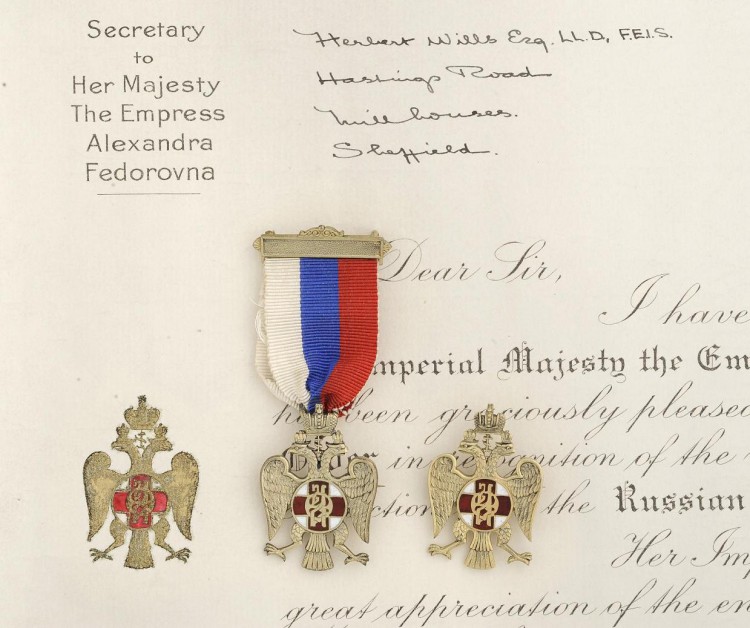 Secretary
to
Her Majesty
The Empress
Alexandra
Fedorovna
Herbert Wills Esq. LL.D, F.E.I.S.
Hastings Road
Millhouses.
Sheffield.
Dear Sir,
I have
Imperial Majesty the Em
been graciously pleased
Order in recognition of the
the Russian
Her Imp
great appreciation of the en